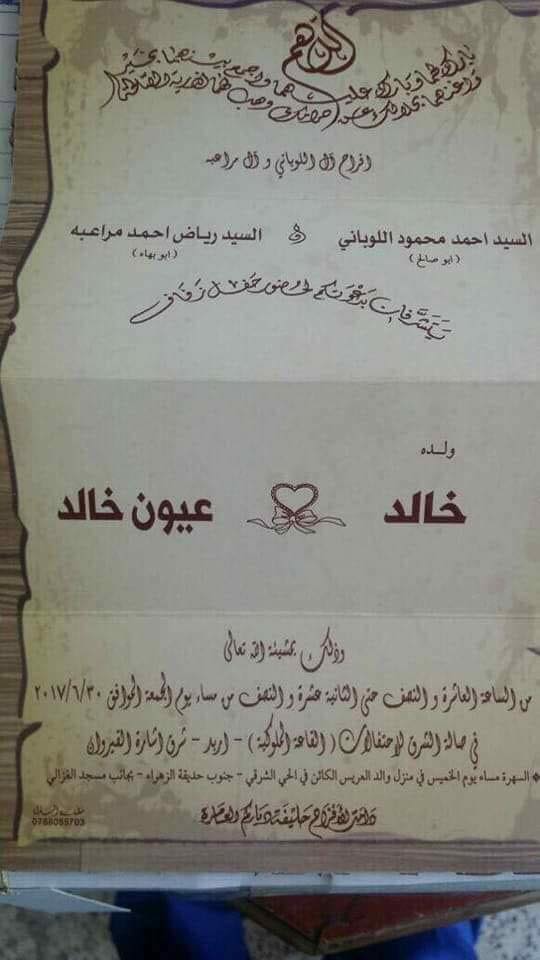 اللهم
بارك لهما وبارك عليهما واجمع بينهما بخير
واغنهما بحلالك عن حرامك وهب لهما الذرية الصالحة
افراح آل اللوباني و آل مراعبه
السيد احمد محمود اللوباني & السيد رياض احمد مراعبه
(ابو صالح) (ابو بهاء)
يتشرفان بدعوتكم لحضور حفل زفاف
ولده
خالد عيون خالد
وذلك بمشيئة الله تعالى
من الساعة العاشرة و النصف حتى الثانية عشرة و النصف من مساء يوم الجمعة الموافق ٢٠١٧/٦/٣٠
في صالة الشرق للإحتفالات ( القاعة الملوكية ) - اربد - شرق اشارة القيروان
* السهرة مساء يوم الخميس في منزل والد العريس الكائن في الحي الشرقي - جنوب حديقة الزهراء - بجانب مسجد الغزالي
دامت الأفراح حليفة دياركم العامرة
0788055703